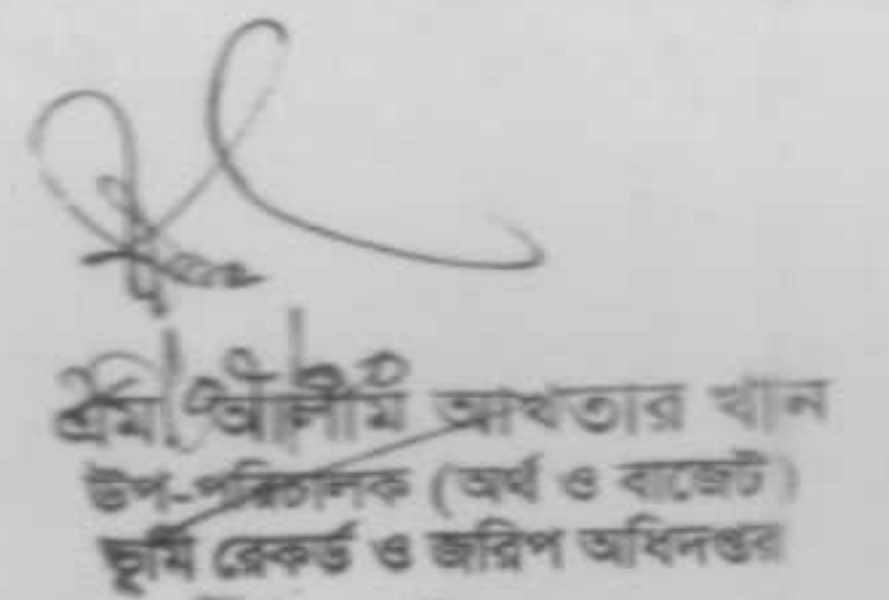 এম. আলীম আখতার খান
উপ-পরিচালক (অর্থ ও বাজেট)
ভূমি রেকর্ড ও জরিপ অধিদপ্তর